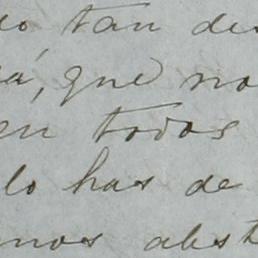 do tan des
á, que no
en todos
lo has de
mos abst